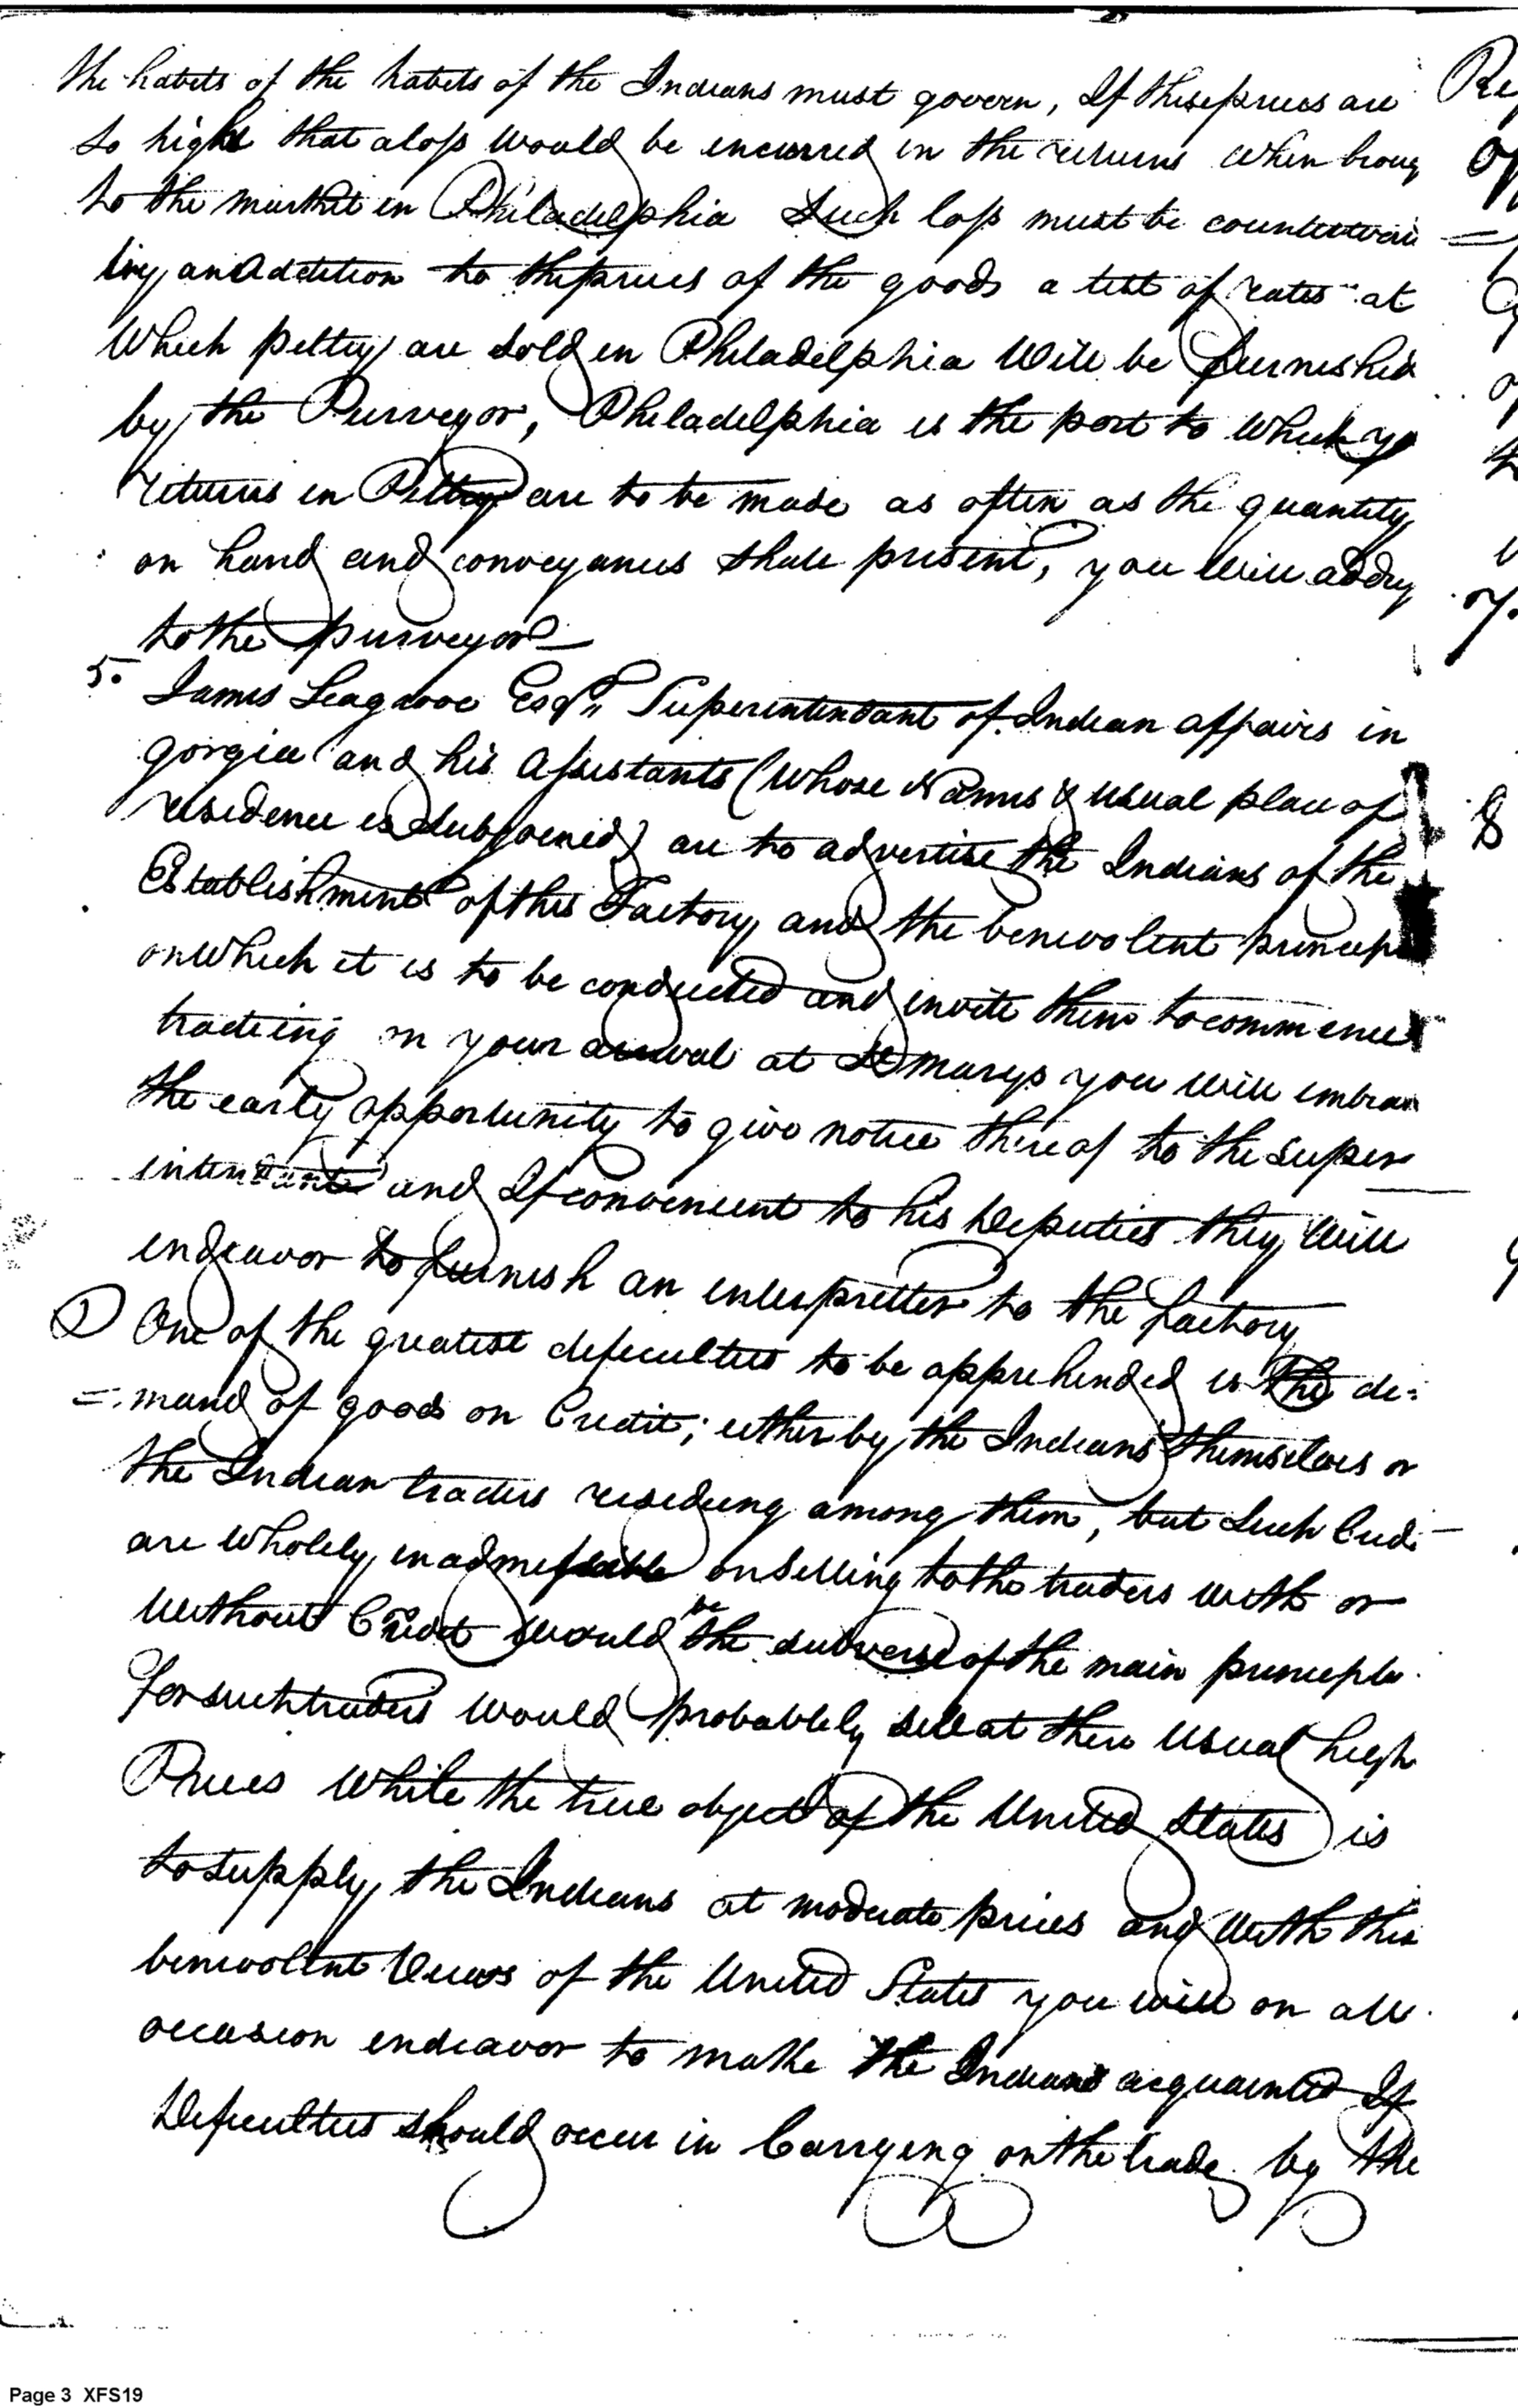 the habits of the habits of the Indians must govern, If these prices are
so high that a loss would be incurred in the returns when broug
to the market in Philadelphia Such loss must be countervai
by an Addition to the prices of the goods a list of rates at
which peltry are sold in Philadelphia will be furnished
by the Purveyor, Philadelphia is the port to which ye
returns in Peltry are to be made as often as the quantity
on hand and conveyances shall present, you will address
to the purveyor
5. James Seagrove Esqr. Superintendant of Indian affairs in
gorgia and his Assistants (whose Names & usual place of
residence is subjoened) are to advertise the Indians of the
Establishment of this Factory and the benevolent princip
on which it is to be conducted and invite them to commence
tradeing on your arrival at St marys you will embrace
the early opportunity to give notice there of to the super
intendant and If convenient to his Deputies they will
endeavor to furnish an interpretter to the factory
One of the greatest deficulties to be apprehended is the de-
=mand of goods on Credit; either by the Indians themselves or
the Indian traders resedeing among them, but Such Credi
are wholely inadmissable on Selling to the traders with or
without Credit would be the subverse of the main principle
For such traders would probablely sell at there usual high
Prices while the true object of the United States is
to supply the Indians at moderate prices and with this
benevolent Views of the United States you will on all
occasion endeavor to make the Indians acquainted If
Deficulties should occur in Carryeng on the trade by the
Page 3 XFS19